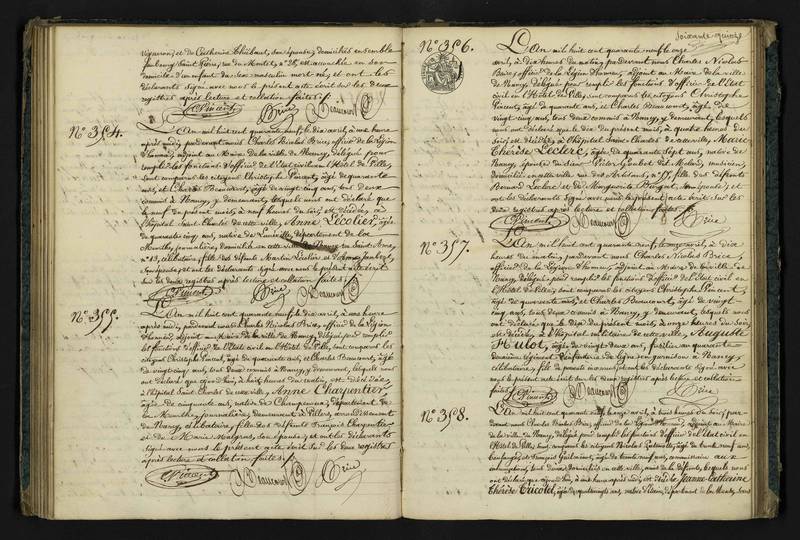 vigneron, et de Catherine Thiébaut, son épouse, domiciliés ensemble
faubourg Saint Pierre, rue du Montet, n° 28, est accouchée en son
domicile d'un enfant du sexe masculin mort né, et ont les
déclarants signé avec nous le présent acte écrit sur les deux
registres après lecture et collation faites.
C. Vincent Brice Beaucourt
N° 354.
L'An mil huit cent quarante neuf, le dix avril, à une heure
après midi, pardevant nous Charles Nicolas Brice, officier de la Légion
d'honneur, adjoint au Maire de la ville de Nancy, délégué pour
remplir les fonctions d'officier de l'Etat civil en l'Hôtel de Ville,
sont comparus les citoyens Christophe Vincent, âgé de quarante
ans, et Charles Beaucourt, âgé de vingt cinq ans, tous deux
commis à Nancy, y demeurant, lesquels nous ont déclaré que
le neuf du présent mois, à neuf heures du soir, est décédée, à
l'hôpital Saint Charles de cette ville, Anne Lecolier, âgée
de quarante cinq ans, native de Lunéville, département de la
Meurthe, journalière, domiciliée en cette ville de Nancy rue Saint Anne,
n° 13, célibataire, fille des défunts Martin Lecolier et
son épouse, et ont les déclarants signé avec nous le présent acte écrit
sur les deux registres après lecture et collation faites.
C. Vincent Brice Beaucourt
N° 355.
L'An mil huit cent quarante neuf, le dix avril, à une heure
après midi, pardevant nous Charles Nicolas Brice, officier de la Légion
d'honneur, adjoint au Maire de la ville de Nancy, délégué pour remplir
les fonctions d'officier de l'Etat civil en l'Hôtel de Ville, sont comparus les
citoyens Christophe Vincent, âgé de quarante ans, et Charles Beaucourt, âgé
de vingt cinq ans, tous deux commis à Nancy, y demeurant, lesquels nous
ont déclaré que cejourd'hui, à huit heures du matin, est décédée
à l'hôpital Saint Charles de cette ville, Anne Charpentier
âgée de cinquante ans, native de Champenoux, département de
la Meurthe, journalière, demeurant à Villers, arrondissement
de Nancy, célibataire, fille des défunts François Charpentier
et de Marie Malgras, son épouse, et ont les déclarants
signé avec nous le présent acte écrit sur les deux registres
après lecture et collation faites.
C. Vincent Beaucourt Brice
Soixante quinze
N° 356.
L'An mil huit cent quarante neuf, le onze
avril, à dix heures du matin, pardevant nous Charles Nicolas
Brice, officier de la Légion d'honneur, adjoint au Maire de la ville
de Nancy, délégué pour remplir les fonctions d'officier de l'Etat
civil en l'Hôtel de Ville, sont comparus les citoyens Christophe
Vincent, âgé de quarante ans, et Charles Beaucourt, âgé de
vingt cinq ans, tous deux commis à Nancy, y demeurant, lesquels
nous ont déclaré que le dix du présent mois, à quatre heures du
soir, est décédée à l'hôpital Saint Charles de cette ville, Marie
Thérèse Leclerc, âgée de quarante sept ans, native de
Nancy, épouse du sieur Victor
domiciliée en cette ville rue des Artisans, n° 17, fille des défunts
Bernard Leclerc et de Marguerite
ont les déclarants signé avec nous le présent acte écrit sur les
deux registres après lecture et collation faites.
C. Vincent Beaucourt Brice
N° 357.
L'An mil huit cent quarante neuf, le onze avril, à dix
heures du matin, pardevant nous Charles Nicolas Brice,
officier de la Légion d'honneur, adjoint au Maire de la ville de
Nancy, délégué pour remplir les fonctions d'officier de l'Etat civil en
l'Hôtel de Ville, sont comparus les citoyens Christophe Vincent,
âgé de quarante ans, et Charles Beaucourt, âgé de vingt
cinq ans, tous deux commis à Nancy, y demeurant, lesquels nous
ont déclaré que le dix du présent mois, à onze heures du soir,
est décédé, à l'hôpital militaire de cette ville, Auguste
Hulot, âgé de vingt deux ans, fusilier au quarante
deuxième régiment d'infanterie de ligne en garnison à Nancy,
célibataire, fils de parents inconnus, et ont les déclarants signé avec
nous le présent acte écrit sur les deux registres après lecture et collation
faites.
C. Vincent Beaucourt Brice
N° 358.
L'An mil huit cent quarante neuf, le onze avril, à trois heures du soir, par
devant nous Charles Nicolas Brice, officier de la Légion d'honneur, adjoint au Maire
de la ville de Nancy, délégué pour remplir les fonctions d'officier de l'Etat civil en
l'Hôtel de Ville, sont comparus les citoyens Nicolas
et François Guillaume, âgé de trente neuf ans, commissaire aux
tous deux domiciliés en cette ville, amis de la défunte, lesquels nous
ont déclaré que cejourd'hui, à une heure après midi, est décédée Jeanne Catherine
Thérèse Tricotel,